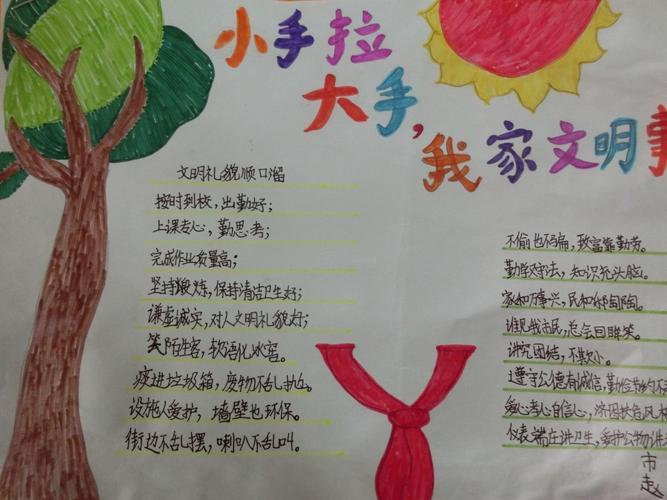 小手拉
大手,
我家文明事
文明礼貌顺口溜
按时到校,出勤好;
上课专心,勤思考;
完成作业质量高;
坚持锻炼,保持清洁卫生好;
谦虚诚实,对人文明礼貌好;
笑陌生客,软语化冰窖。
痰进垃圾箱,废物不乱扔。
设施人爱护,墙壁也环保。
街边不乱摆,喇叭不乱叫。
不偷也不骗,致富靠勤劳。
勤学守法,知识充头脑。
家和万事兴,民和邻
谁见我市民,总会回眸笑。
讲究团结,不欺小。
遵守公德有诚信,勤俭节约不
爱心孝心自信心,济困扶危风
仪表端庄讲卫生,爱护公物讲
市
赵